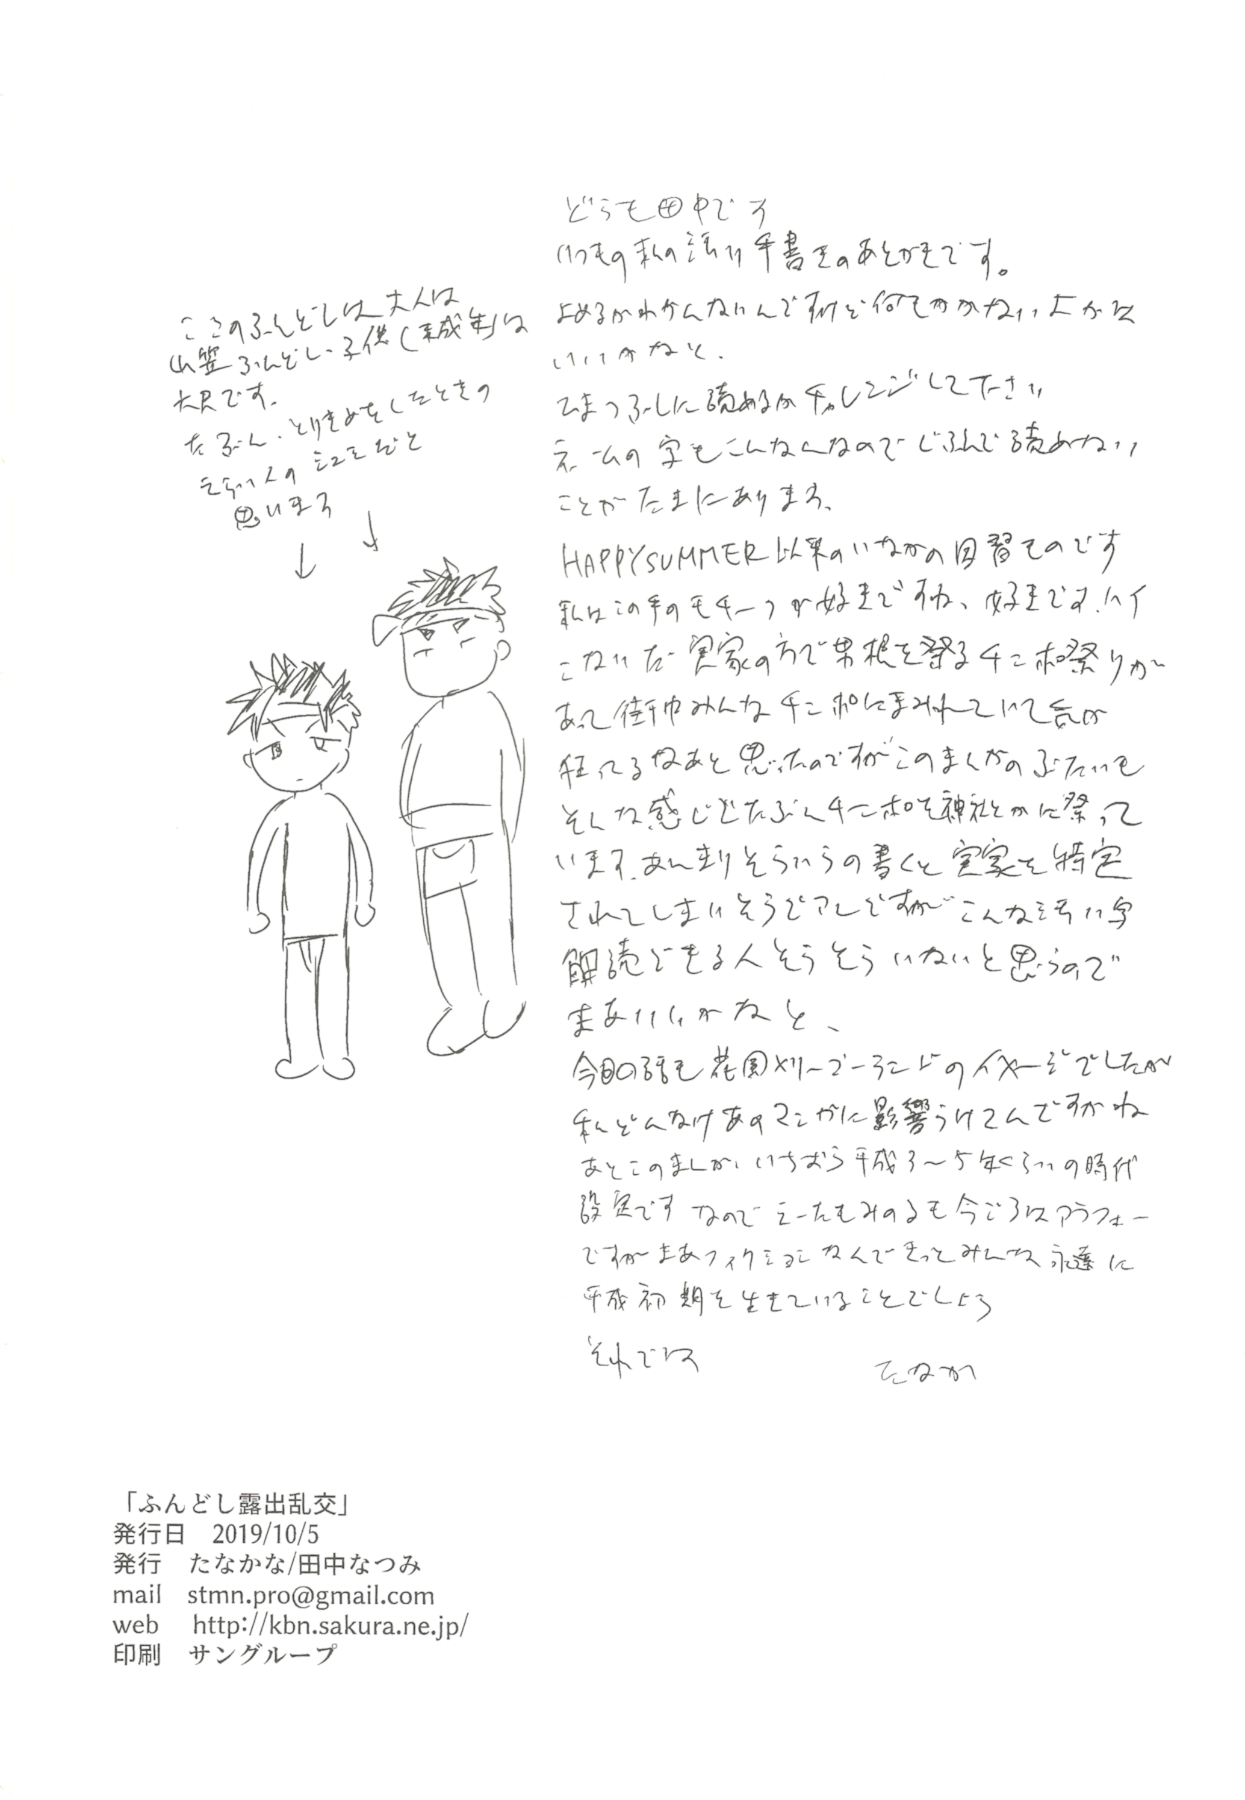 どうも田中です
いつもの私の汚い手書きのあとがきです。
よめるかわかんないんですけど何もかかないよかは
いいかなと、
ひまつぶしに読めるかチャレンジして下さい
ネームの字もこんなんなのでじぶんで読めない
ことがたまにあります、
HAPPYSUMMER以来のいなかの因習ものです
私はこの手のモチーフが好きですね、好きです、ハイ
こないだ実家の方で男根を祭るチンポ祭りが
あって街中みんなチンポにまみれていて気が
狂ってるなあと思ったのですがこのまんがのぶたいも
そんな感じでたぶんチンポを神社とかに祭って
います、あんまりそういうの書くと実家を特定
されてしまいそうでアレですがこんな汚い字
解読できる人そうそういないと思うので
まあいいかなと、
今回の話も花園メリーゴーランドのイメージでしたが
私どんなけあのマンガに影響うけてんですかね
あとこのまんが、いちおう平成3〜5年くらいの時代
設定です なので もみのるも今ごろはアラフォー
ですがまあフィクションなんできっとみんな永遠に
平成初期を生きていることでしょう
それでは たなか
ここのふんどしは大人は
山笠ふんどし、子供(未成年)は
六尺です、
たぶん、とりきめをしたときの
えらい人の だと
思います
「ふんどし露出乱交」
発行日 2019/10/5
発行 たなかな/田中なつみ
mail stmn.pro@gmail.com
web http://kbn.sakura.ne.jp/
印刷 サングループ